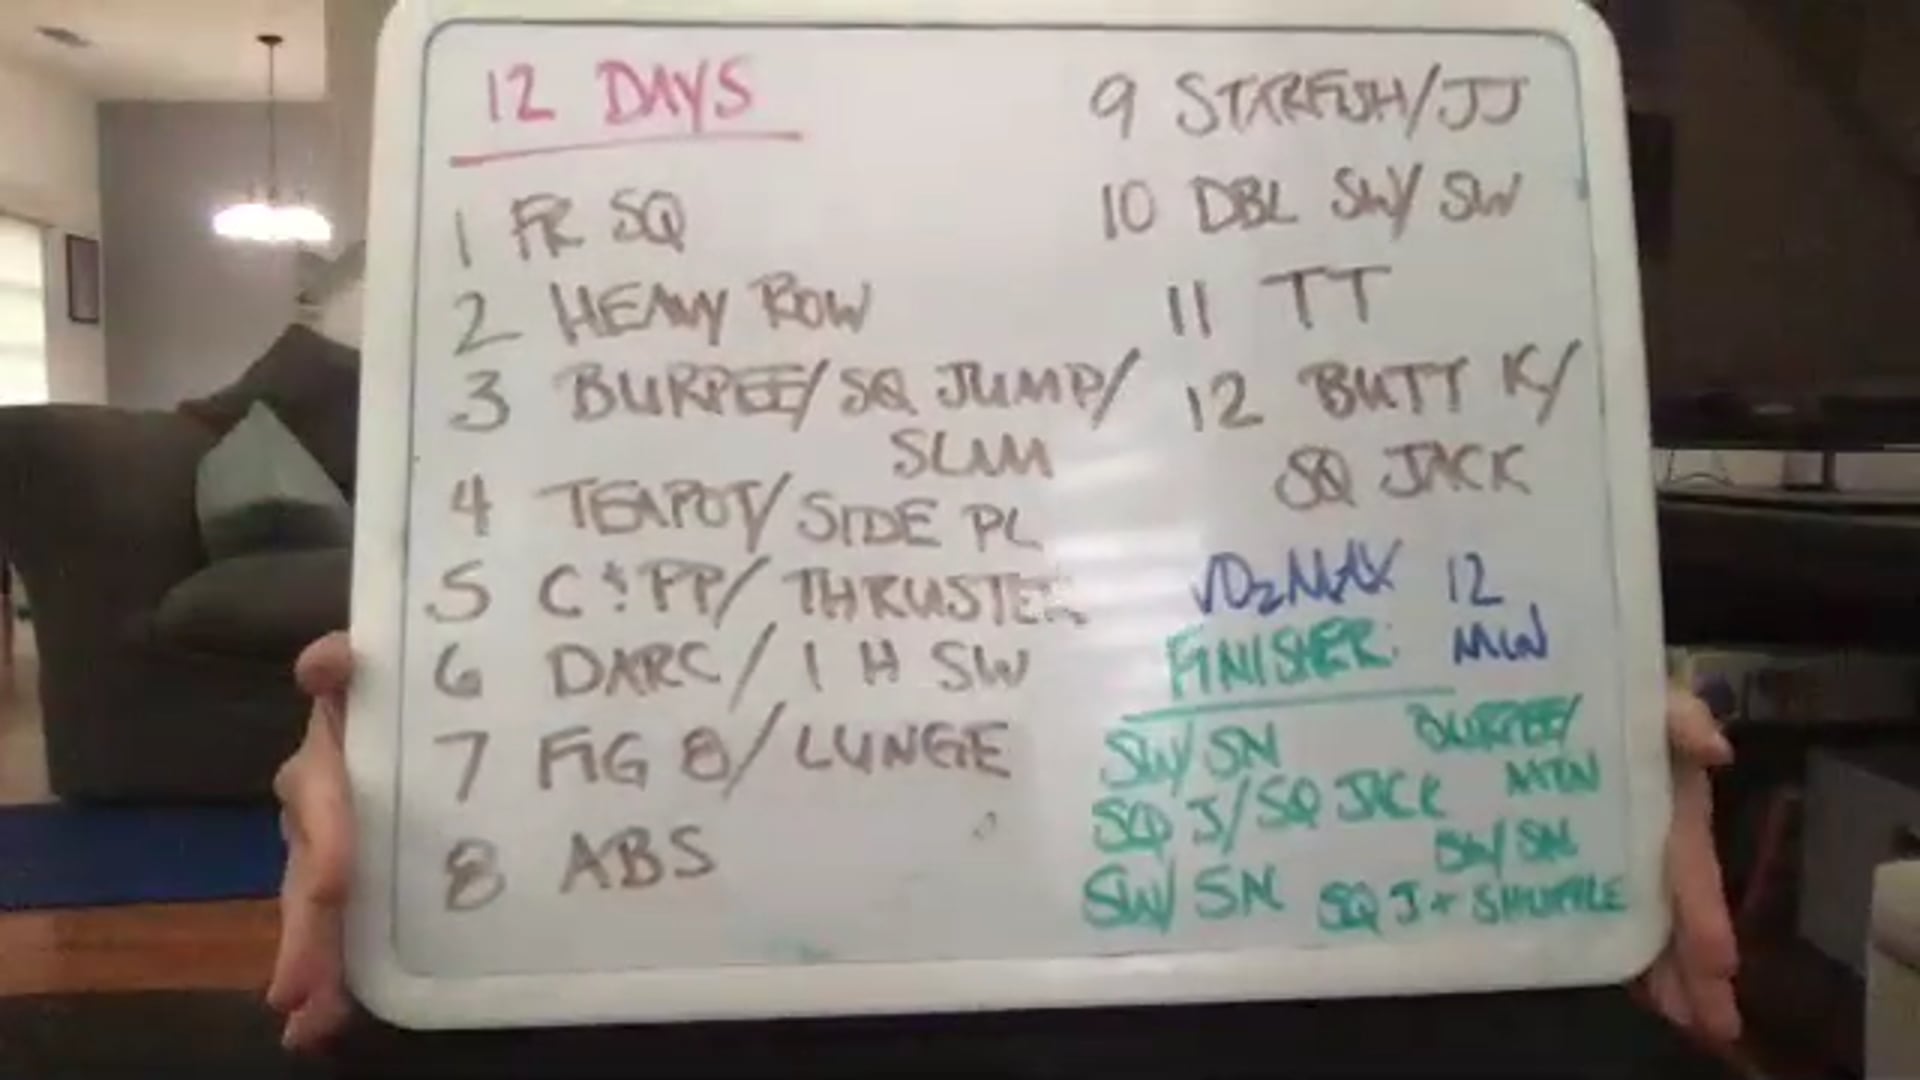 12 DAYS
1 FR SQ
2 HEAVY ROW
3 BURPEE/SQ JUMP/
SLAM
4 TEAPOT/SIDE PL
5 C & PP/THRUSTER
6 DARC/1 H SW
7 FIG 8/LUNGE
8 ABS
9 STARFISH/JJ
10 DBL SW/SW
11 TT
12 BUTT K/
SQ JACK
VO2MAX 12
MIN
FINISHER:
SW/SN
SQ J/SQ JACK
SW/SN
BURPEE/
MTN
SW/SN
SQ J + SHUFFLE